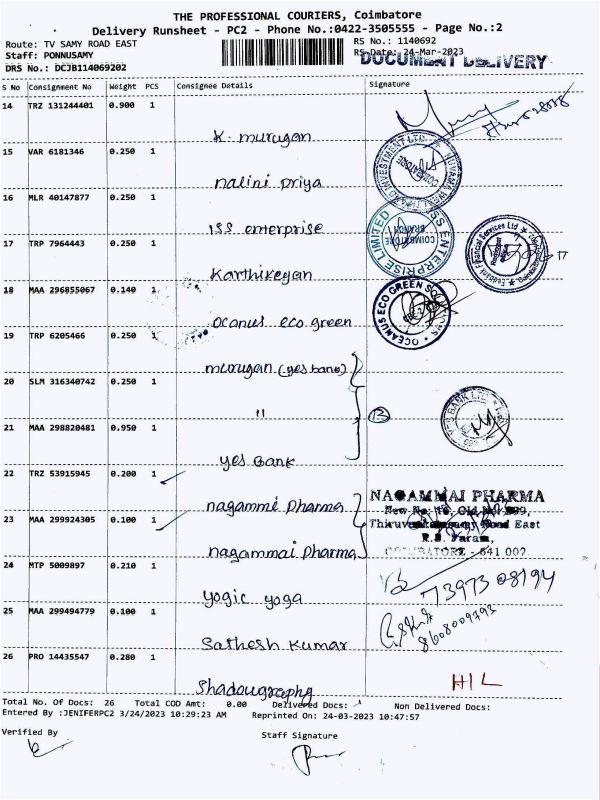 THE PROFESSIONAL COURIERS, Coimbatore
Delivery Runsheet - PC2 - Phone No.:0422-3505555 - Page No.:2
Route: TV SAMY ROAD EAST
Staff: PONNUSAMY
DRS No.: DCJB114069202
RS No.: 1140692
RS Date: 24-Mar-2023
DOCUMENT DELIVERY
S No Consignment No Weight PCS Consignee Details Signature
14 TRZ 131244401 0.900 1
K. murugan
15 VAR 6181346 0.250 1
nalini priya
16 MLR 40147877 0.250 1
ISS enterprise
17 TRP 7964443 0.250 1
Karthikeyan
18 MAA 296855067 0.140 1
oceanus eco green
19 TRP 6205466 0.250 1
murugan (yes bank)
20 SLM 316340742 0.250 1
"
21 MAA 298820481 0.950 1
yes Bank
22 TRZ 53915945 0.200 1
nagammi Pharma
23 MAA 299924305 0.100 1
nagammai Pharma
NAGAMMAI PHARMA
R.S. Puram,
COIMBATORE - 641 002
24 MTP 5009897 0.210 1
yogic yoga
73973 08194
25 MAA 299494779 0.100 1
Sathesh Kumar
8608009793
26 PRO 14435547 0.280 1
Shadougraphy
H/L
Total No. Of Docs: 26 Total COD Amt: 0.00 Delivered Docs: Non Delivered Docs:
Entered By :JENIFERPC2 3/24/2023 10:29:23 AM Reprinted On: 24-03-2023 10:47:57
Verified By
Staff Signature